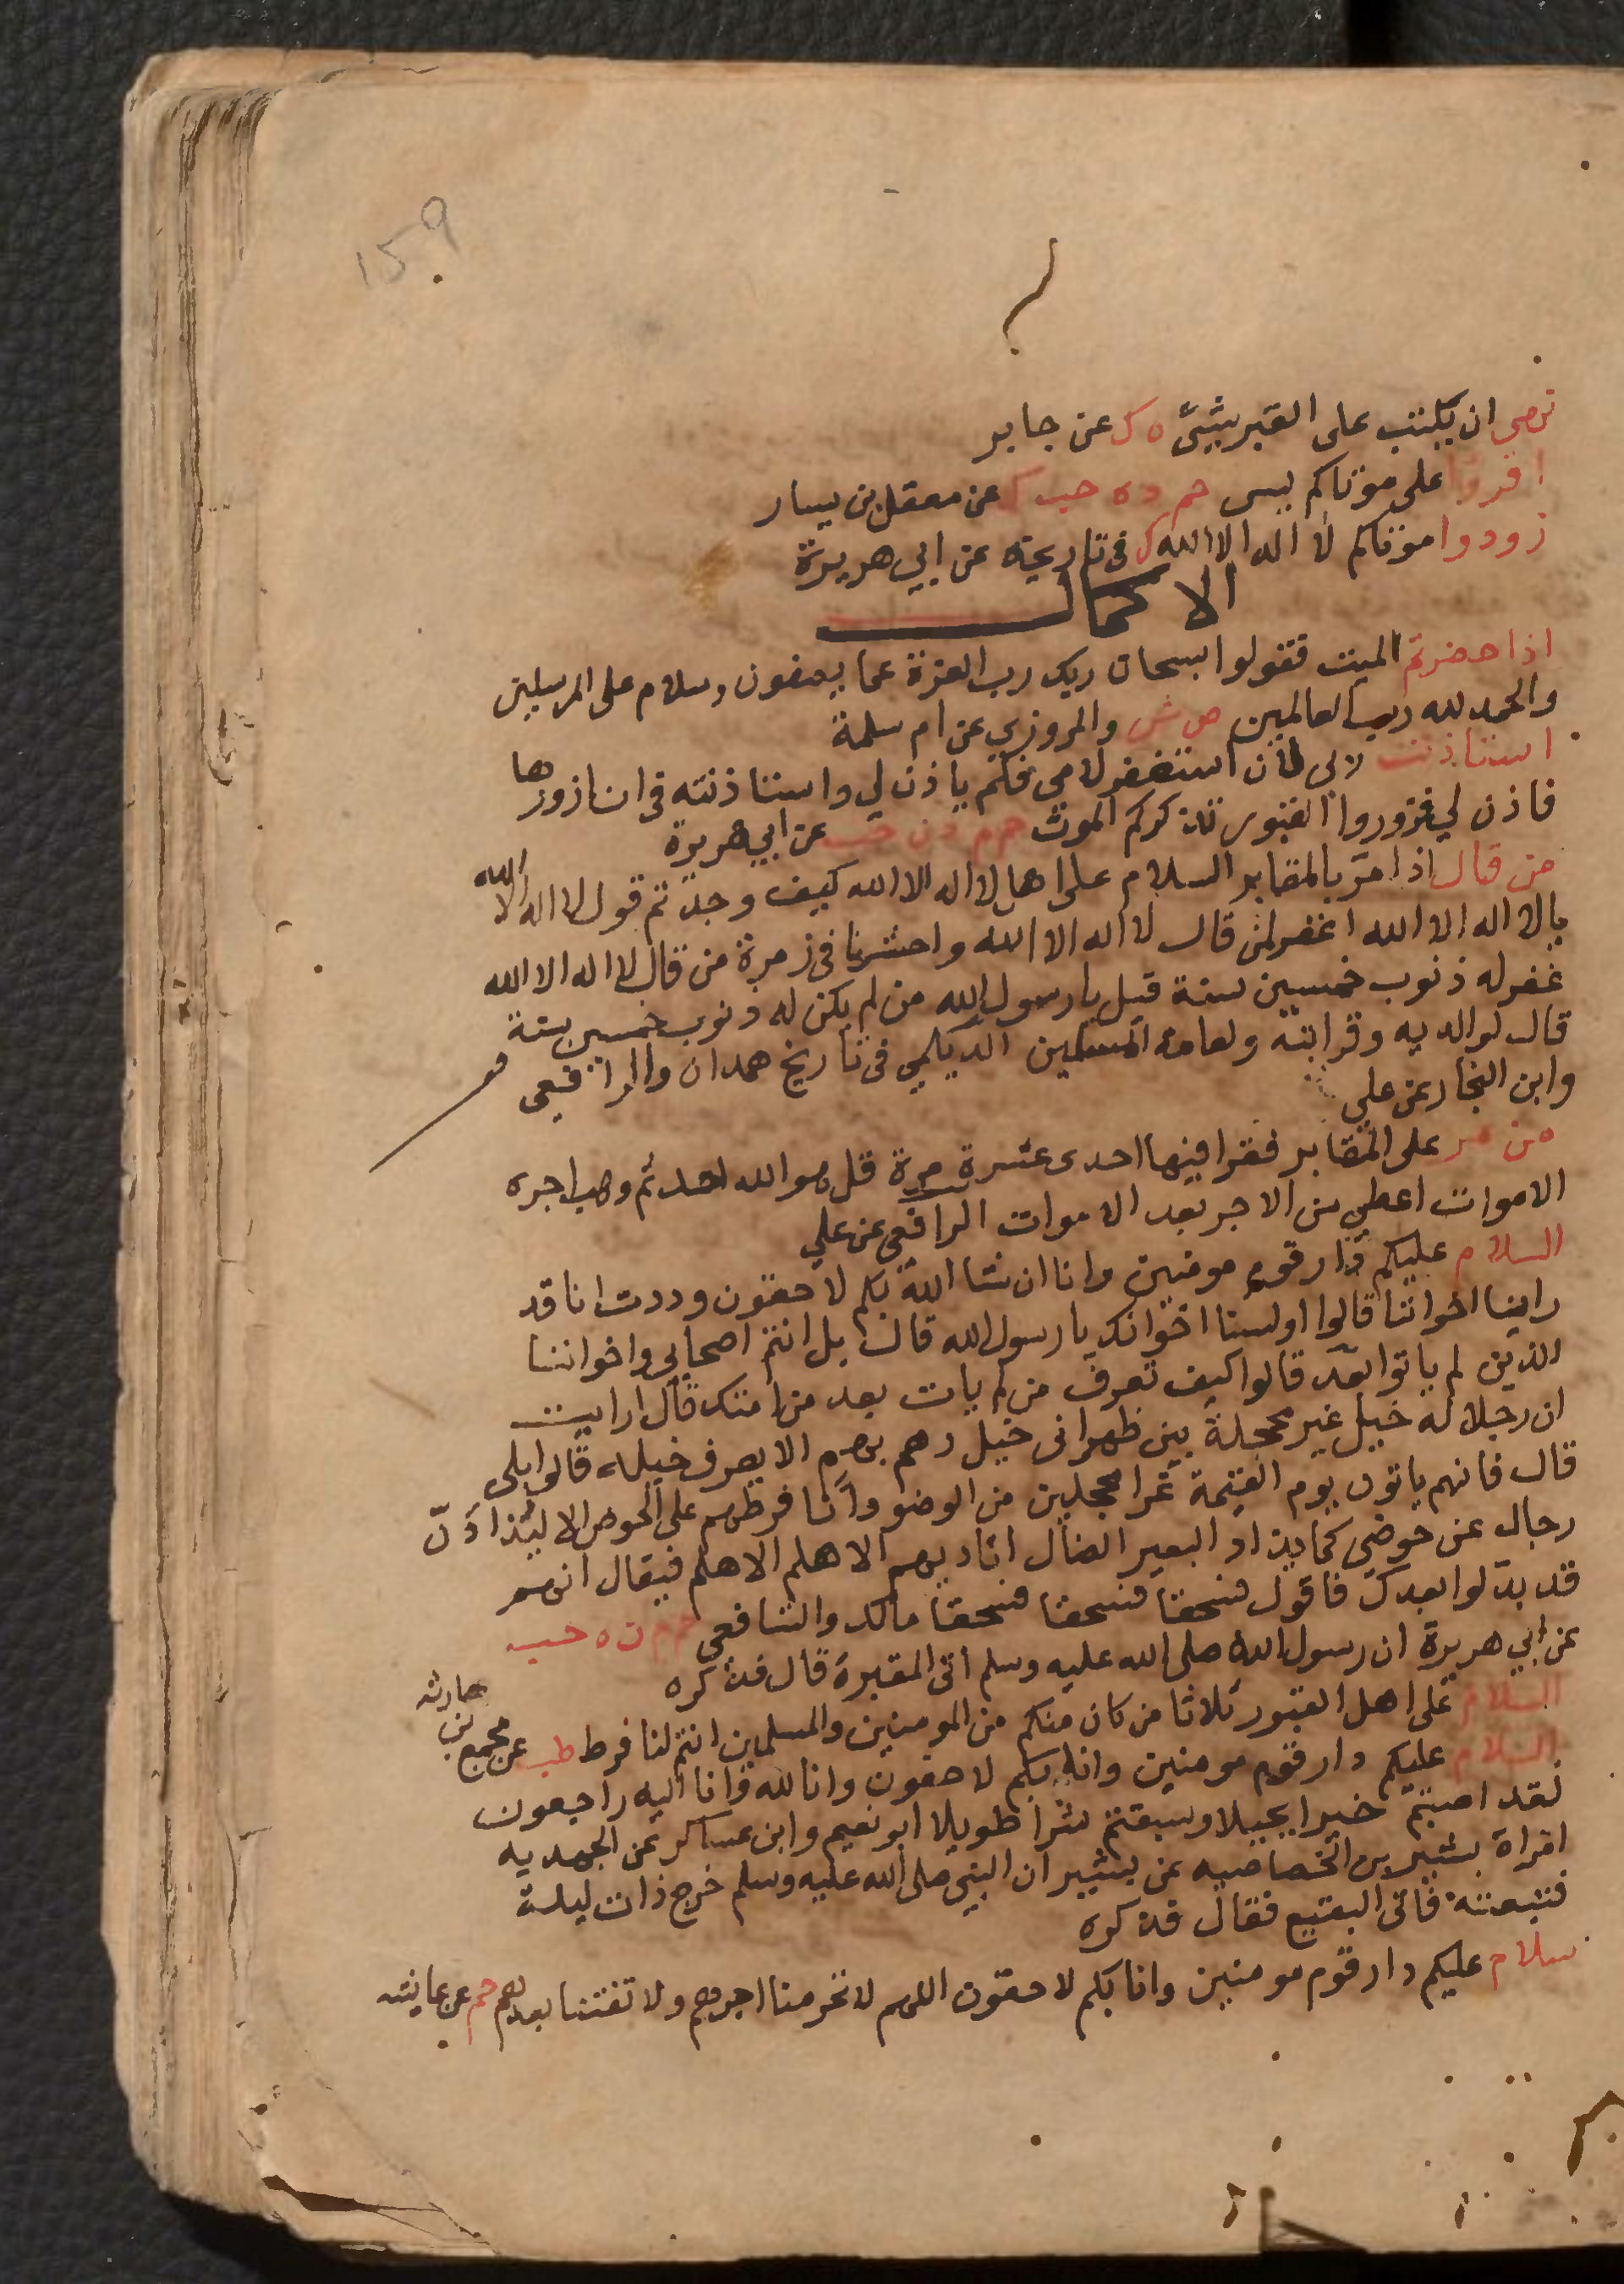 159
نهى ان يكتب على القبر بشئ ه ك عن جابر
اقروا على موتاكم يس حم د ه حب ك عن معقل بن يسار
زودوا موتاكم لا اله الا الله ك فى تاريخه عن ابي هريرة
الاكمال
اذا حضرتم الميت فقولوا سبحان ربك رب العزة عما يصفون وسلام على المرسلين
والحمد لله رب العالمين ص ش والمروزي عن ام سلمة
استاذنت ربي ان استغفر لامي فلم ياذن لي واستاذنته في ان ازورها
فاذن لي فزوروا القبور تذكركم الموت حم م د ن حب عن ابي هريرة
من قال اذا مر بالمقابر السلام على اهل لا اله الا الله كيف وجدتم قول لا اله الا الله
يا لا اله الا الله اغفر لمن قال لا اله الا الله واحشرنا في زمرة من قال لا اله الا الله
غفر له ذنوب خمسين سنة قيل يا رسول الله من لم يكن له ذنوب خمسين سنة
قال لوالديه وقرابته ولعامة المسلمين الديلمي في تاريخ همدان والرافعى
وابن النجار عن علي
من مر على المقابر فقرا فيها احدى عشرة مرة قل هو الله احد ثم وهب اجره
الاموات اعطي من الاجر بعدد الاموات الرافعى عن علي
السلام عليكم دار قوم مومنين وانا ان شا الله بكم لاحقون وددت انا قد
راينا اخواننا قالوا اولسنا اخوانك يا رسول الله قال بل انتم اصحابي واخواننا
الذين لم ياتوا بعد قالوا كيف تعرف من لم يات بعد من امتك قال ارايت
ان رجلا له خيل غير محجلة بين ظهراني خيل دهم بهم الا يعرف خيله قالوا بلى
قال فانهم ياتون يوم القيمة غرا محجلين من الوضو وانا فرطهم على الحوض الا ليذادن
رجال عن حوضى كما يذاد البعير الضال اناديهم الا هلم الا هلم فيقال انهم
قد بدلوا بعدك فاقول فسحقا فسحقا فسحقا مالك والشافعى حم م ن ه حب
عن ابي هريرة ان رسول الله صلى الله عليه وسلم اتى المقبرة قال فذكره
السلام على اهل القبور ثلاثا من كان منكم من المومنين والمسلمين انتم لنا فرط طب عن مجمع بن حارثه
السلام عليكم دار قوم مومنين وانا بكم لاحقون وانا لله وانا اليه راجعون
لقد اصبتم خيرا بجيلا وسبقتم شرا طويلا ابو نعيم وابن عساكر عن الجهدمه
امراة بشير بن الخصاصيه عن بشير ان النبي صلى الله عليه وسلم خرج ذات ليلة
فتبعته فاتى البقيع فقال فذكره
سلام عليكم دار قوم مومنين وانا بكم لاحقون اللهم لا تحرمنا اجرهم ولا تفتنا بعدهم حم عن عايشه